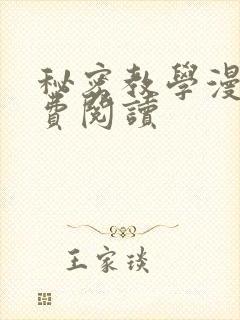 秘密教學漫
費閱讀
王家琰